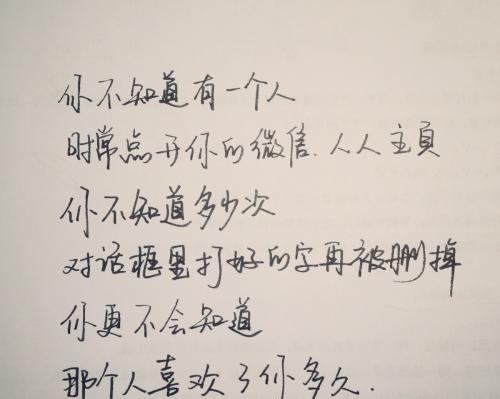 你不知道有一个人
时常点开你的微信.人人主页
你不知道多少次
对话框里打好的字再被删掉
你更不会知道
那个人喜欢了你多久.